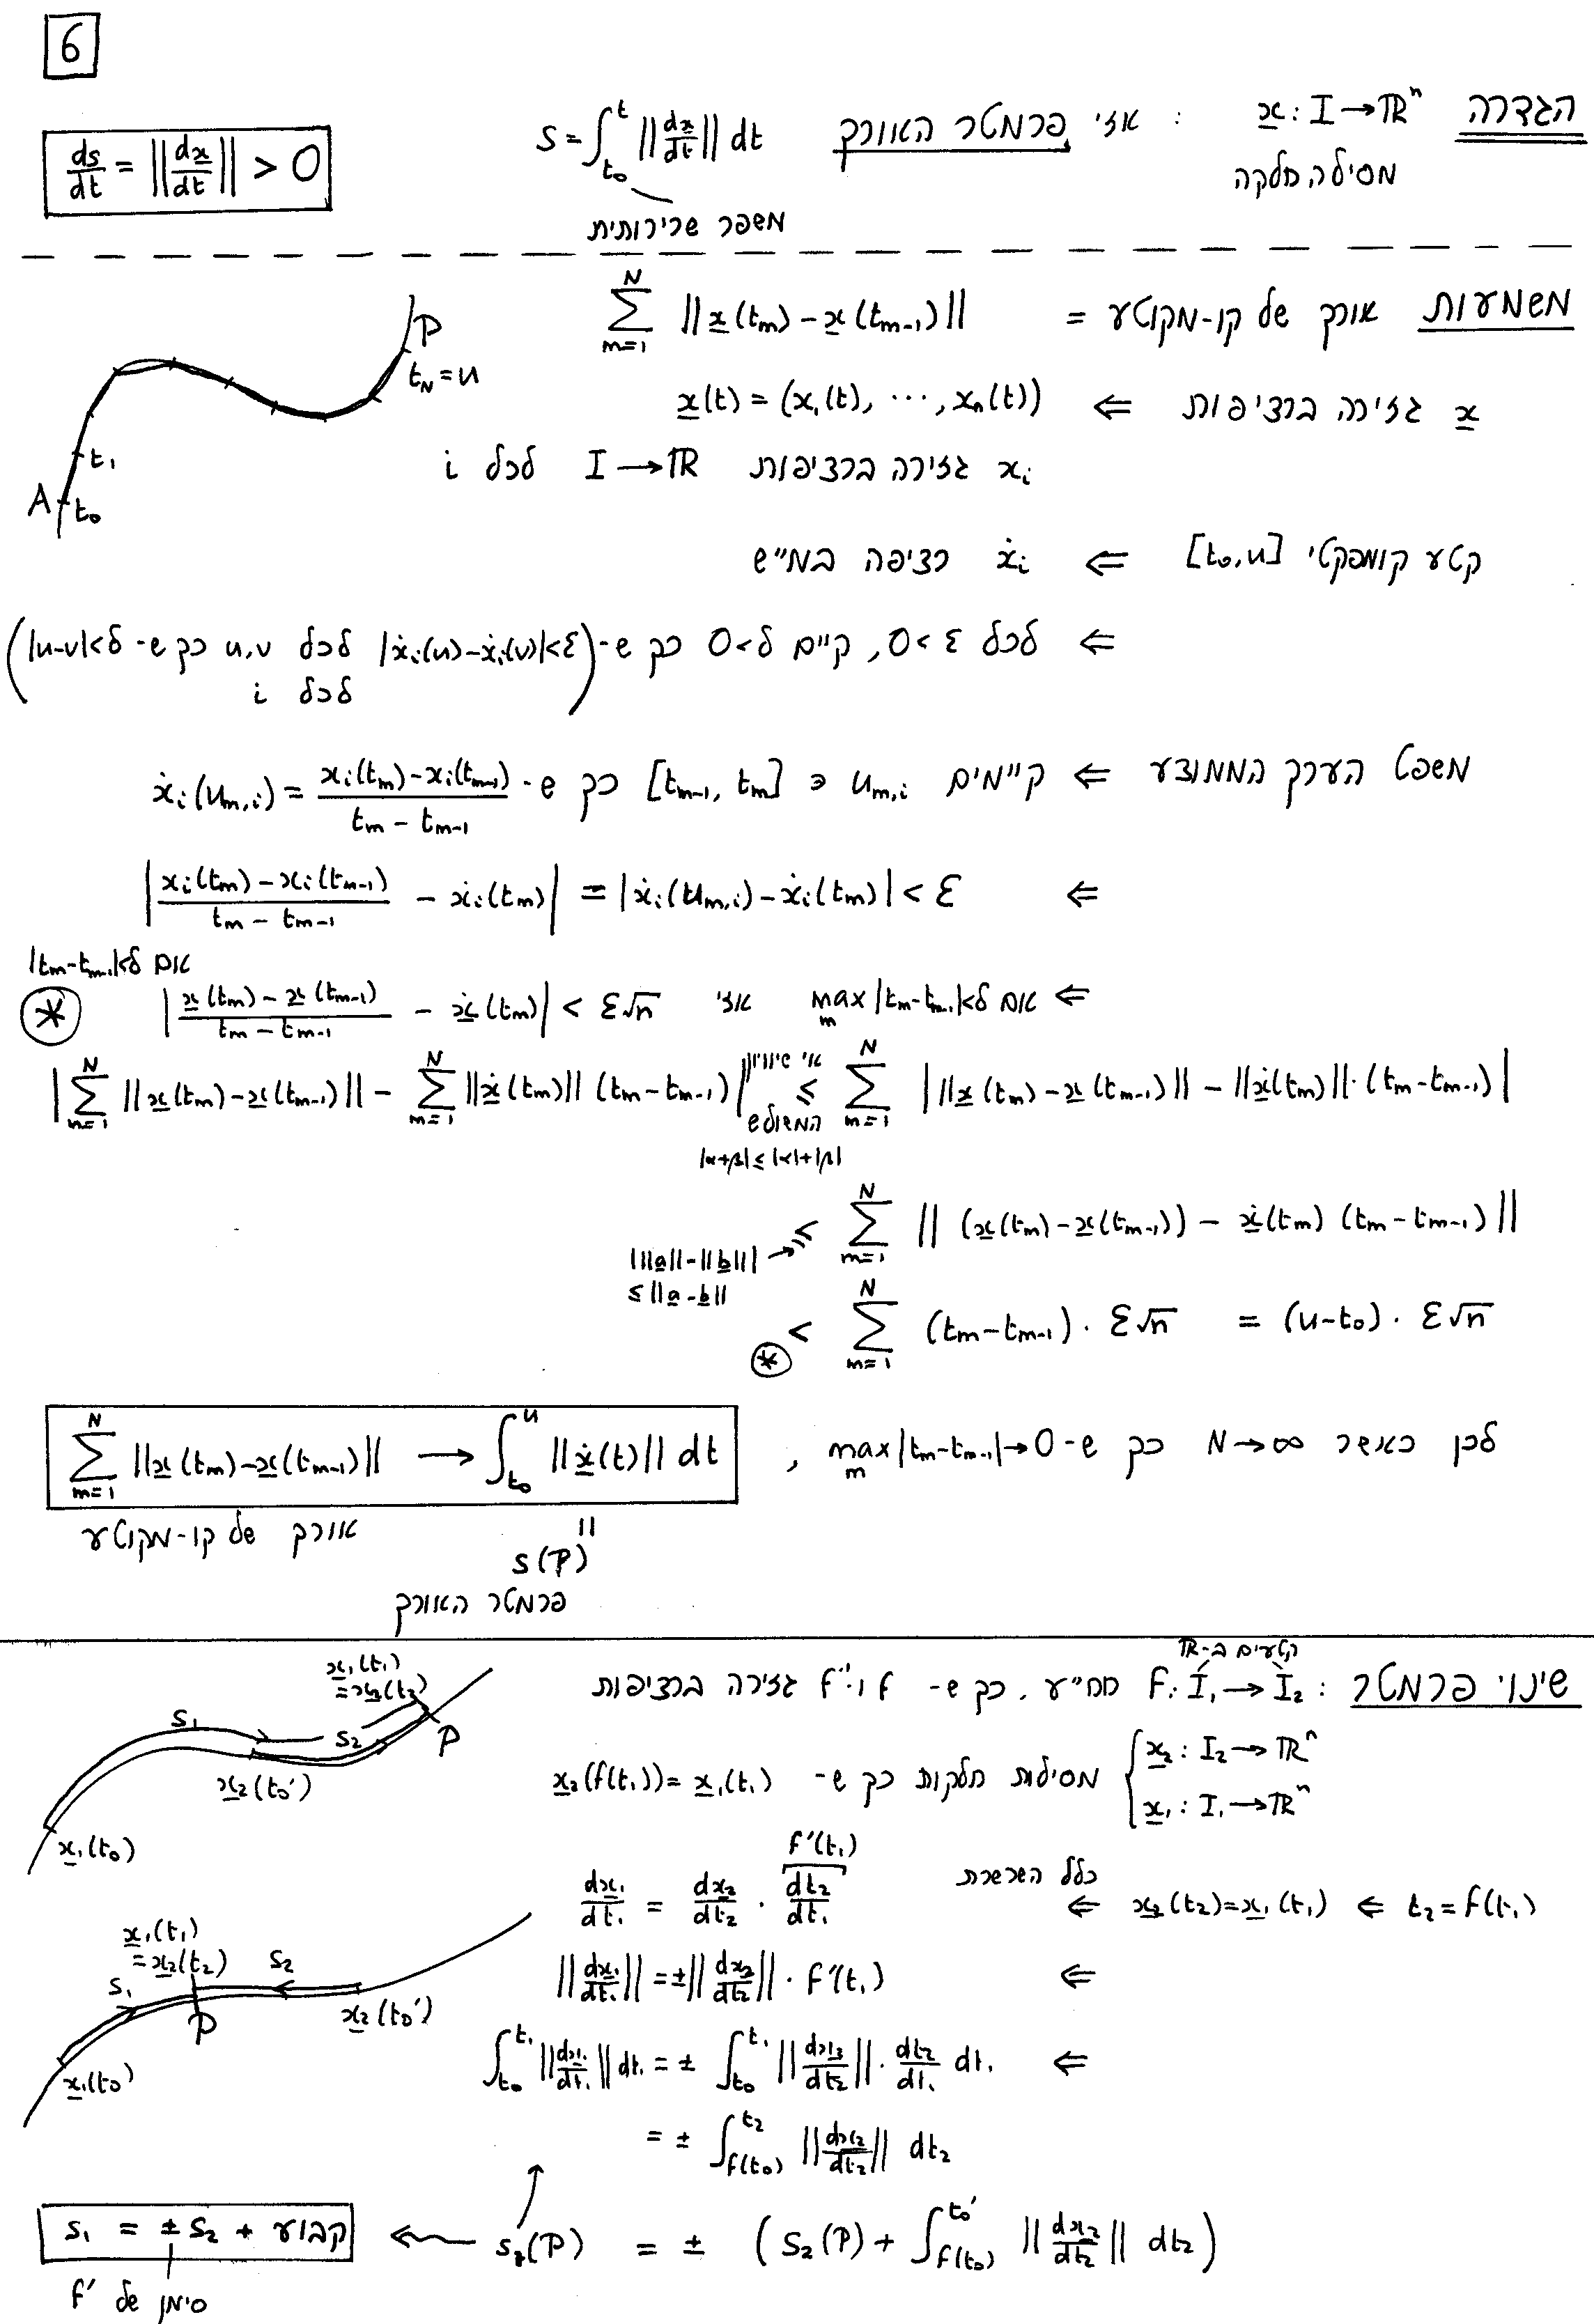 6
הגדרה x̲ : I → ℝⁿ : אזי פרמטר האורך S = ∫_{t₀}^{t} ||dx̲/dt|| dt
ds/dt = ||dx̲/dt|| > 0
מסילה חלקה
מספר שרירותית
משמעות אורך של קו-מקוטע = ∑_{m=1}^{N} ||x̲(t_m) - x̲(t_{m-1})||
P
t_N = u
t₁
A t₀
x̲ גזירה ברציפות ⇐ x̲(t) = (x₁(t), ⋯, x_n(t))
x_i גזירה ברציפות I → ℝ לכל i
קטע קומפקטי [t₀, u] ⇐ ẋ_i רציפה במ"ש
⇐ לכל ε > 0, קיים δ > 0 כך ש- (|ẋ_i(u) - ẋ_i(v)| < ε לכל u,v כך ש- |u-v| < δ
לכל i)
משפט הערך הממוצע ⇐ קיימים u_{m,i} ∈ [t_{m-1}, t_m] כך ש- ẋ_i(u_{m,i}) = (x_i(t_m) - x_i(t_{m-1}))/(t_m - t_{m-1})
⇐ |(x_i(t_m) - x_i(t_{m-1}))/(t_m - t_{m-1}) - ẋ_i(t_m)| = |ẋ_i(u_{m,i}) - ẋ_i(t_m)| < ε
אם |t_m - t_{m-1}| < δ
⇐ אם max_m |t_m - t_{m-1}| < δ אזי |(x̲(t_m) - x̲(t_{m-1}))/(t_m - t_{m-1}) - ẋ̲(t_m)| < ε√n ⊛
|∑_{m=1}^{N} ||x̲(t_m) - x̲(t_{m-1})|| - ∑_{m=1}^{N} ||ẋ̲(t_m)|| (t_m - t_{m-1})| ≤ ∑_{m=1}^{N} | ||x̲(t_m) - x̲(t_{m-1})|| - ||ẋ̲(t_m)||·(t_m - t_{m-1}) |
אי שיוויון
המשולש
|α+β| ≤ |α|+|β|
≤ ∑_{m=1}^{N} || (x̲(t_m) - x̲(t_{m-1})) - ẋ̲(t_m) (t_m - t_{m-1}) ||
| ||a̲|| - ||b̲|| | →
≤ ||a̲ - b̲||
< ∑_{m=1}^{N} (t_m - t_{m-1}) · ε√n = (u - t₀) · ε√n
⊛
לכן כאשר N → ∞ כך ש- max_m |t_m - t_{m-1}| → 0 , ∑_{m=1}^{N} ||x̲(t_m) - x̲(t_{m-1})|| → ∫_{t₀}^{u} ||ẋ̲(t)|| dt
אורך של קו-מקוטע
||
s(P)
פרמטר האורך
קטעים ב-ℝ
שינוי פרמטר : f : I₁ → I₂ חח"ע, כך ש- f ו f⁻¹ גזירה ברציפות
x̲₁(t₁)
= x̲₂(t₂)
S₁ S₂ P
x̲₂(t₀')
x̲₁(t₀)
{ x̲₂ : I₂ → ℝⁿ
x̲₁ : I₁ → ℝⁿ
מסילות חלקות כך ש- x̲₂(f(t₁)) = x̲₁(t₁)
f'(t₁)
t₂ = f(t₁) ⇐ x̲₂(t₂) = x̲₁(t₁) ⇐ כלל השרשרת dx̲₁/dt₁ = dx̲₂/dt₂ · dt₂/dt₁
x̲₁(t₁)
= x̲₂(t₂)
S₁ S₂ P
x̲₂(t₀')
x̲₁(t₀)
⇐ ||dx̲₁/dt₁|| = ±||dx̲₂/dt₂|| · f'(t₁)
⇐ ∫_{t₀}^{t₁} ||dx̲₁/dt₁|| dt₁ = ± ∫_{t₀}^{t₁} ||dx̲₂/dt₂|| · dt₂/dt₁ dt₁
= ± ∫_{f(t₀)}^{t₂} ||dx̲₂/dt₂|| dt₂
s₁(P) = ± (S₂(P) + ∫_{f(t₀)}^{t₀'} ||dx̲₂/dt₂|| dt₂)
s₁ = ± s₂ + קבוע
סימן של f'